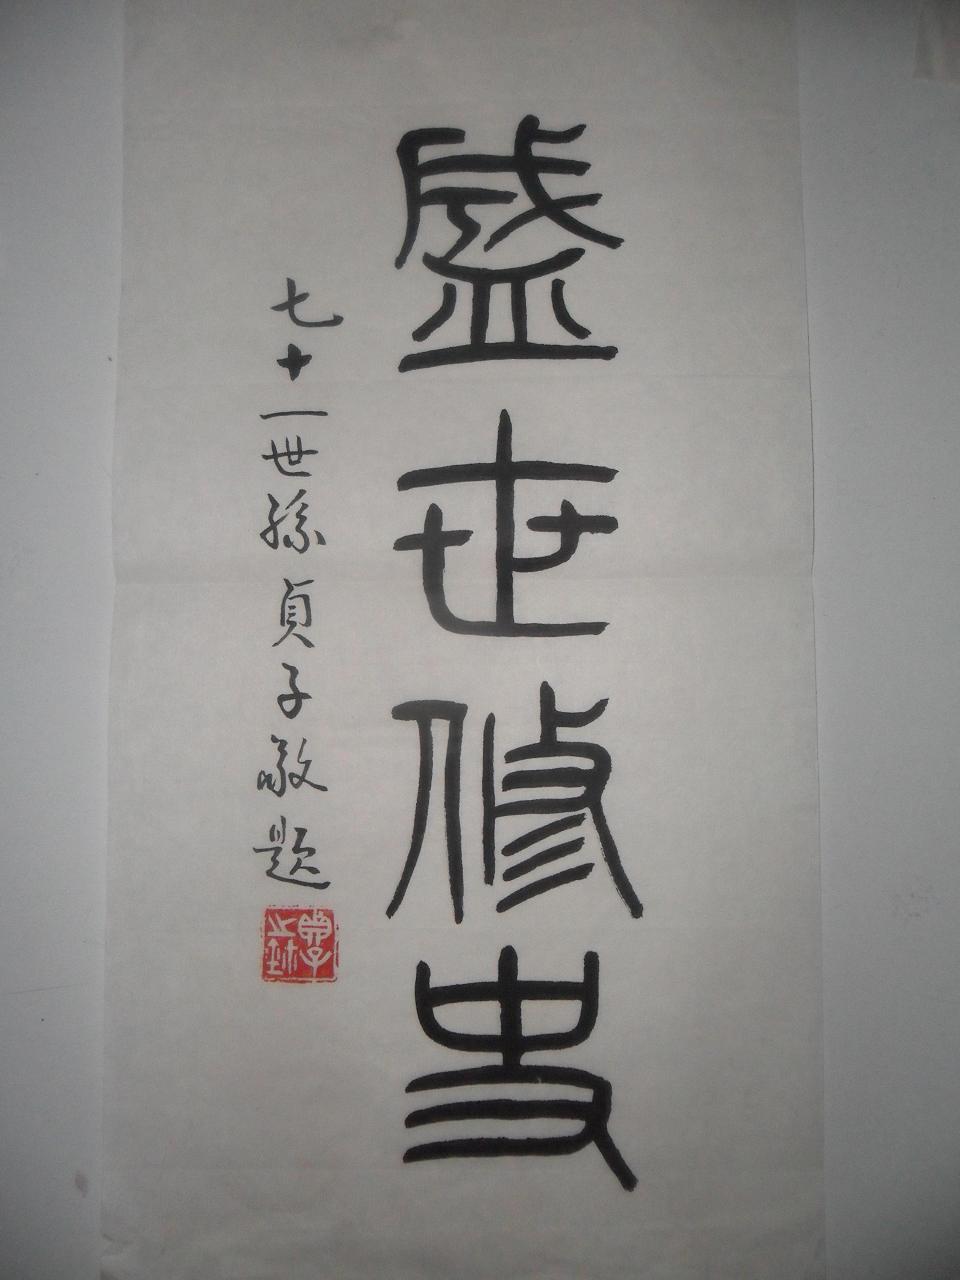 盛世修史
七十一世孫貞子敬題